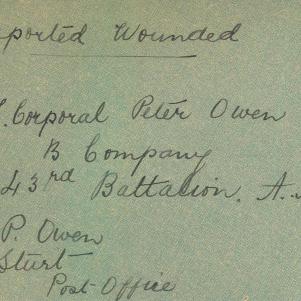 ported Wounded
Corporal Peter Owen
B Company
43rd Battalion. A.
P. Owen
Sturt
Post Office